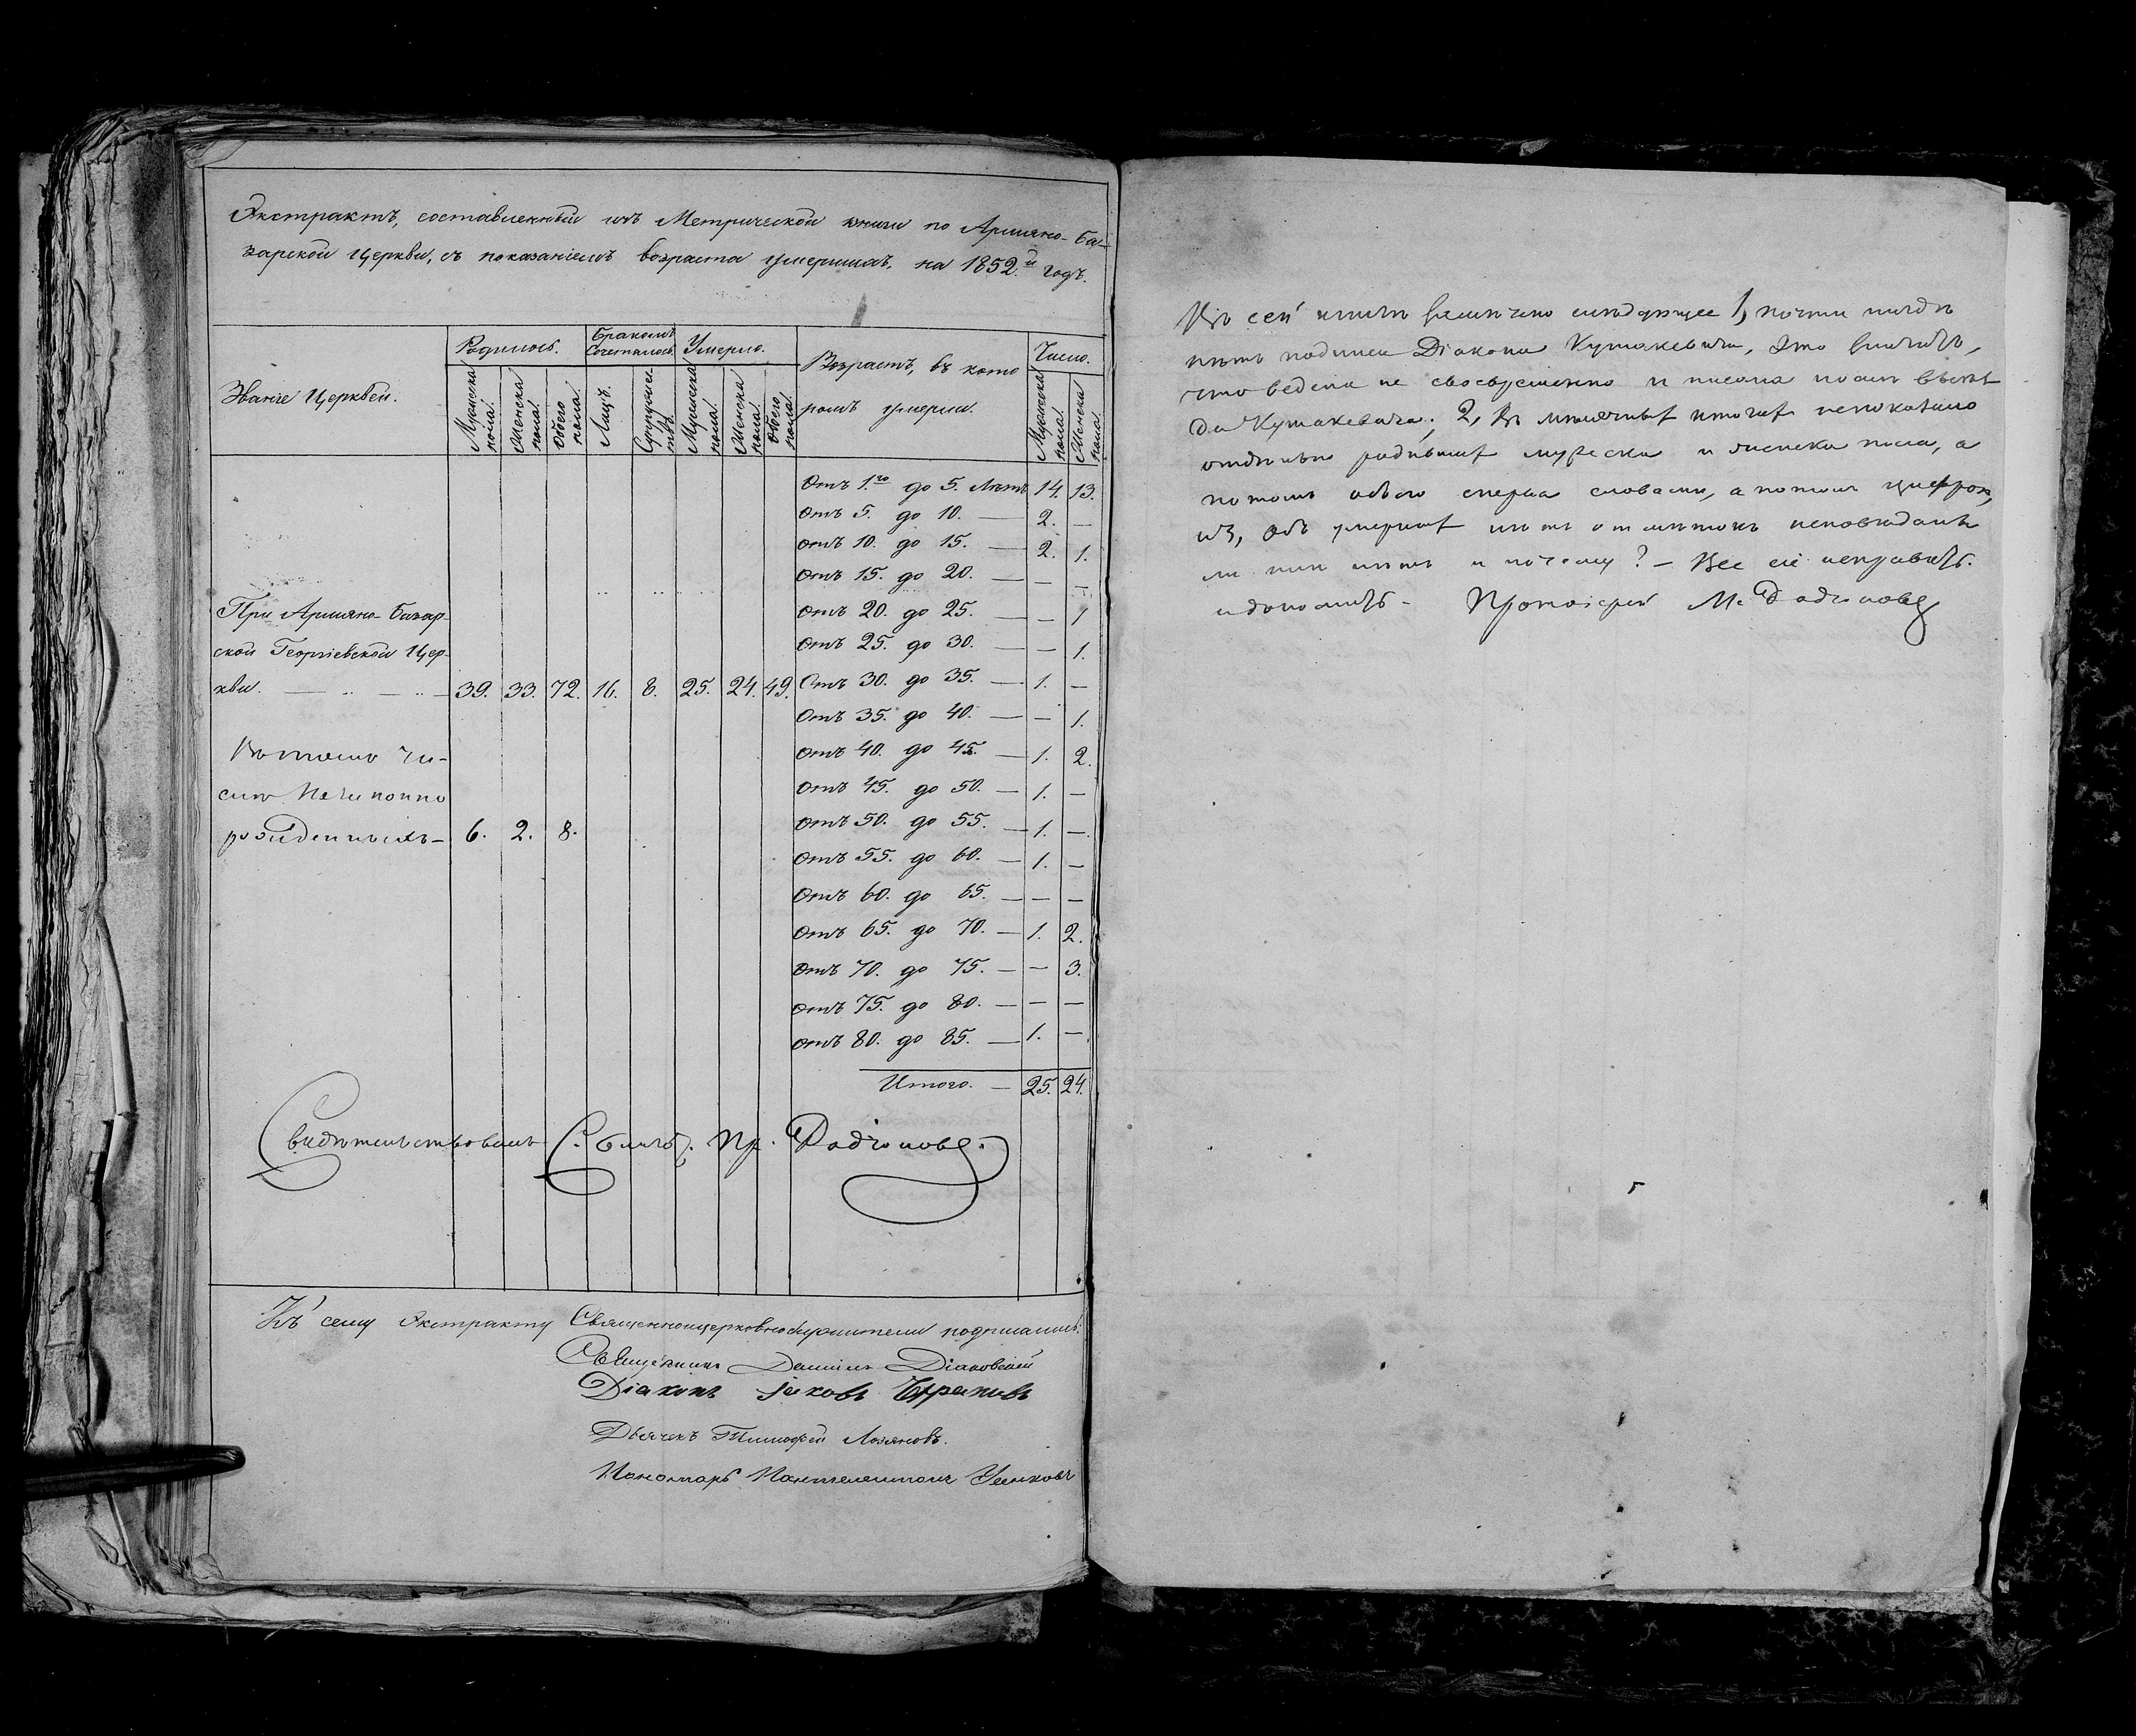 Экстрактъ, составленный изъ Метрической книги по Армяно-Ба-
зарской Церкви, съ показаніемъ возраста умершихъ, на 1852.й годъ.
Званіе Церквей.
Родилось.
Мужеска пола.
Женска пола.
Обоего пола.
Бракомъ Сочеталось.
Лицъ.
Супружествъ.
Умерло.
Мужеска пола.
Женска пола.
Обоего пола.
Возрастъ, въ кото
ромъ умерли.
Число.
Мужеска пола.
Женска пола.
При Армяно-Базар-
ской Георгіевской Цер-
кви. — 39. 33. 72. 16. 8. 25. 24. 49.
Въ томъ чи-
слѣ
рожденныхъ — 6. 2. 8.
Отъ 1.го до 5. Лѣтъ 14. 13.
Отъ 5. до 10. — 2. —
Отъ 10. до 15. — 2. 1.
Отъ 15. до 20. — — —
Отъ 20. до 25. — — 1
Отъ 25. до 30. — — 1.
Отъ 30. до 35. — 1. —
Отъ 35. до 40. — — 1.
Отъ 40. до 45. — 1. 2.
Отъ 45. до 50. — 1. —
Отъ 50. до 55. — 1. —
Отъ 55. до 60. — 1. —
Отъ 60. до 65. — — —
Отъ 65. до 70. — 1. 2.
Отъ 70. до 75. — — 3.
Отъ 75. до 80. — — —
Отъ 80. до 85. — 1. —
Итого. — 25. 24.
Свидѣтельствовалъ Пр. Родіоновъ.
Къ сему Экстракту Священноцерковнослужители подписались:
Священникъ Даніилъ
Діаконъ Іаковъ
Дьячекъ Тимофей
Пономарь Пантелеимонъ
Въ сей книгѣ замѣчено слѣдующее 1, почти нигдѣ
нѣтъ подписи Діакона Кушакевича, это значитъ,
что ведена не своевременно и писана послѣ
Кушакевича; 2, въ мѣсячныхъ итогахъ непоказано
отдѣльно родившихъ мужеска и женска пола, а
потомъ обоего сперва словами, а потомъ цифрою,
3, объ умершихъ нѣтъ отмѣтокъ исповѣданы
ли или нѣтъ и почему? — Все сіе исправить.
и дополнить — Протоіерей М. Родіоновъ